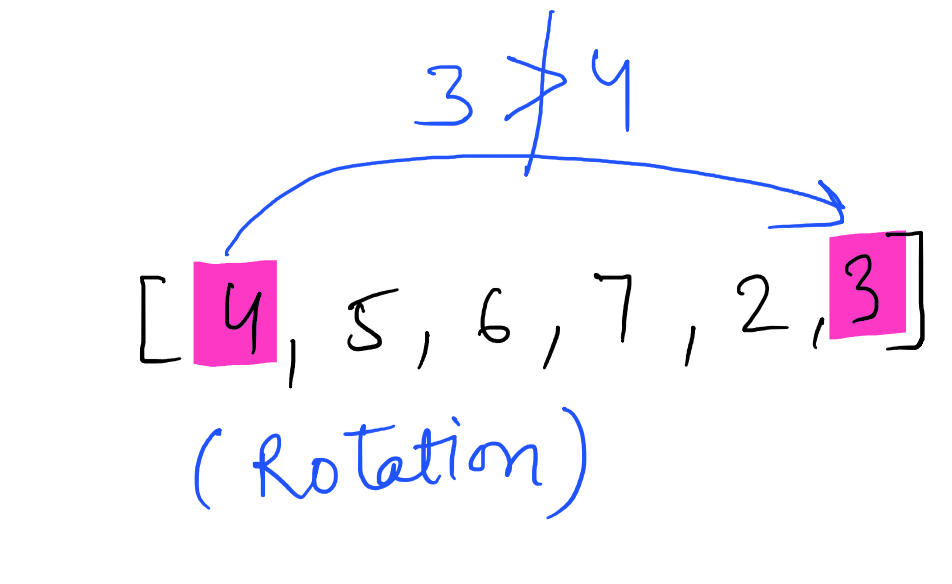 3 ≯ 4
[4, 5, 6, 7, 2, 3]
(Rotation)